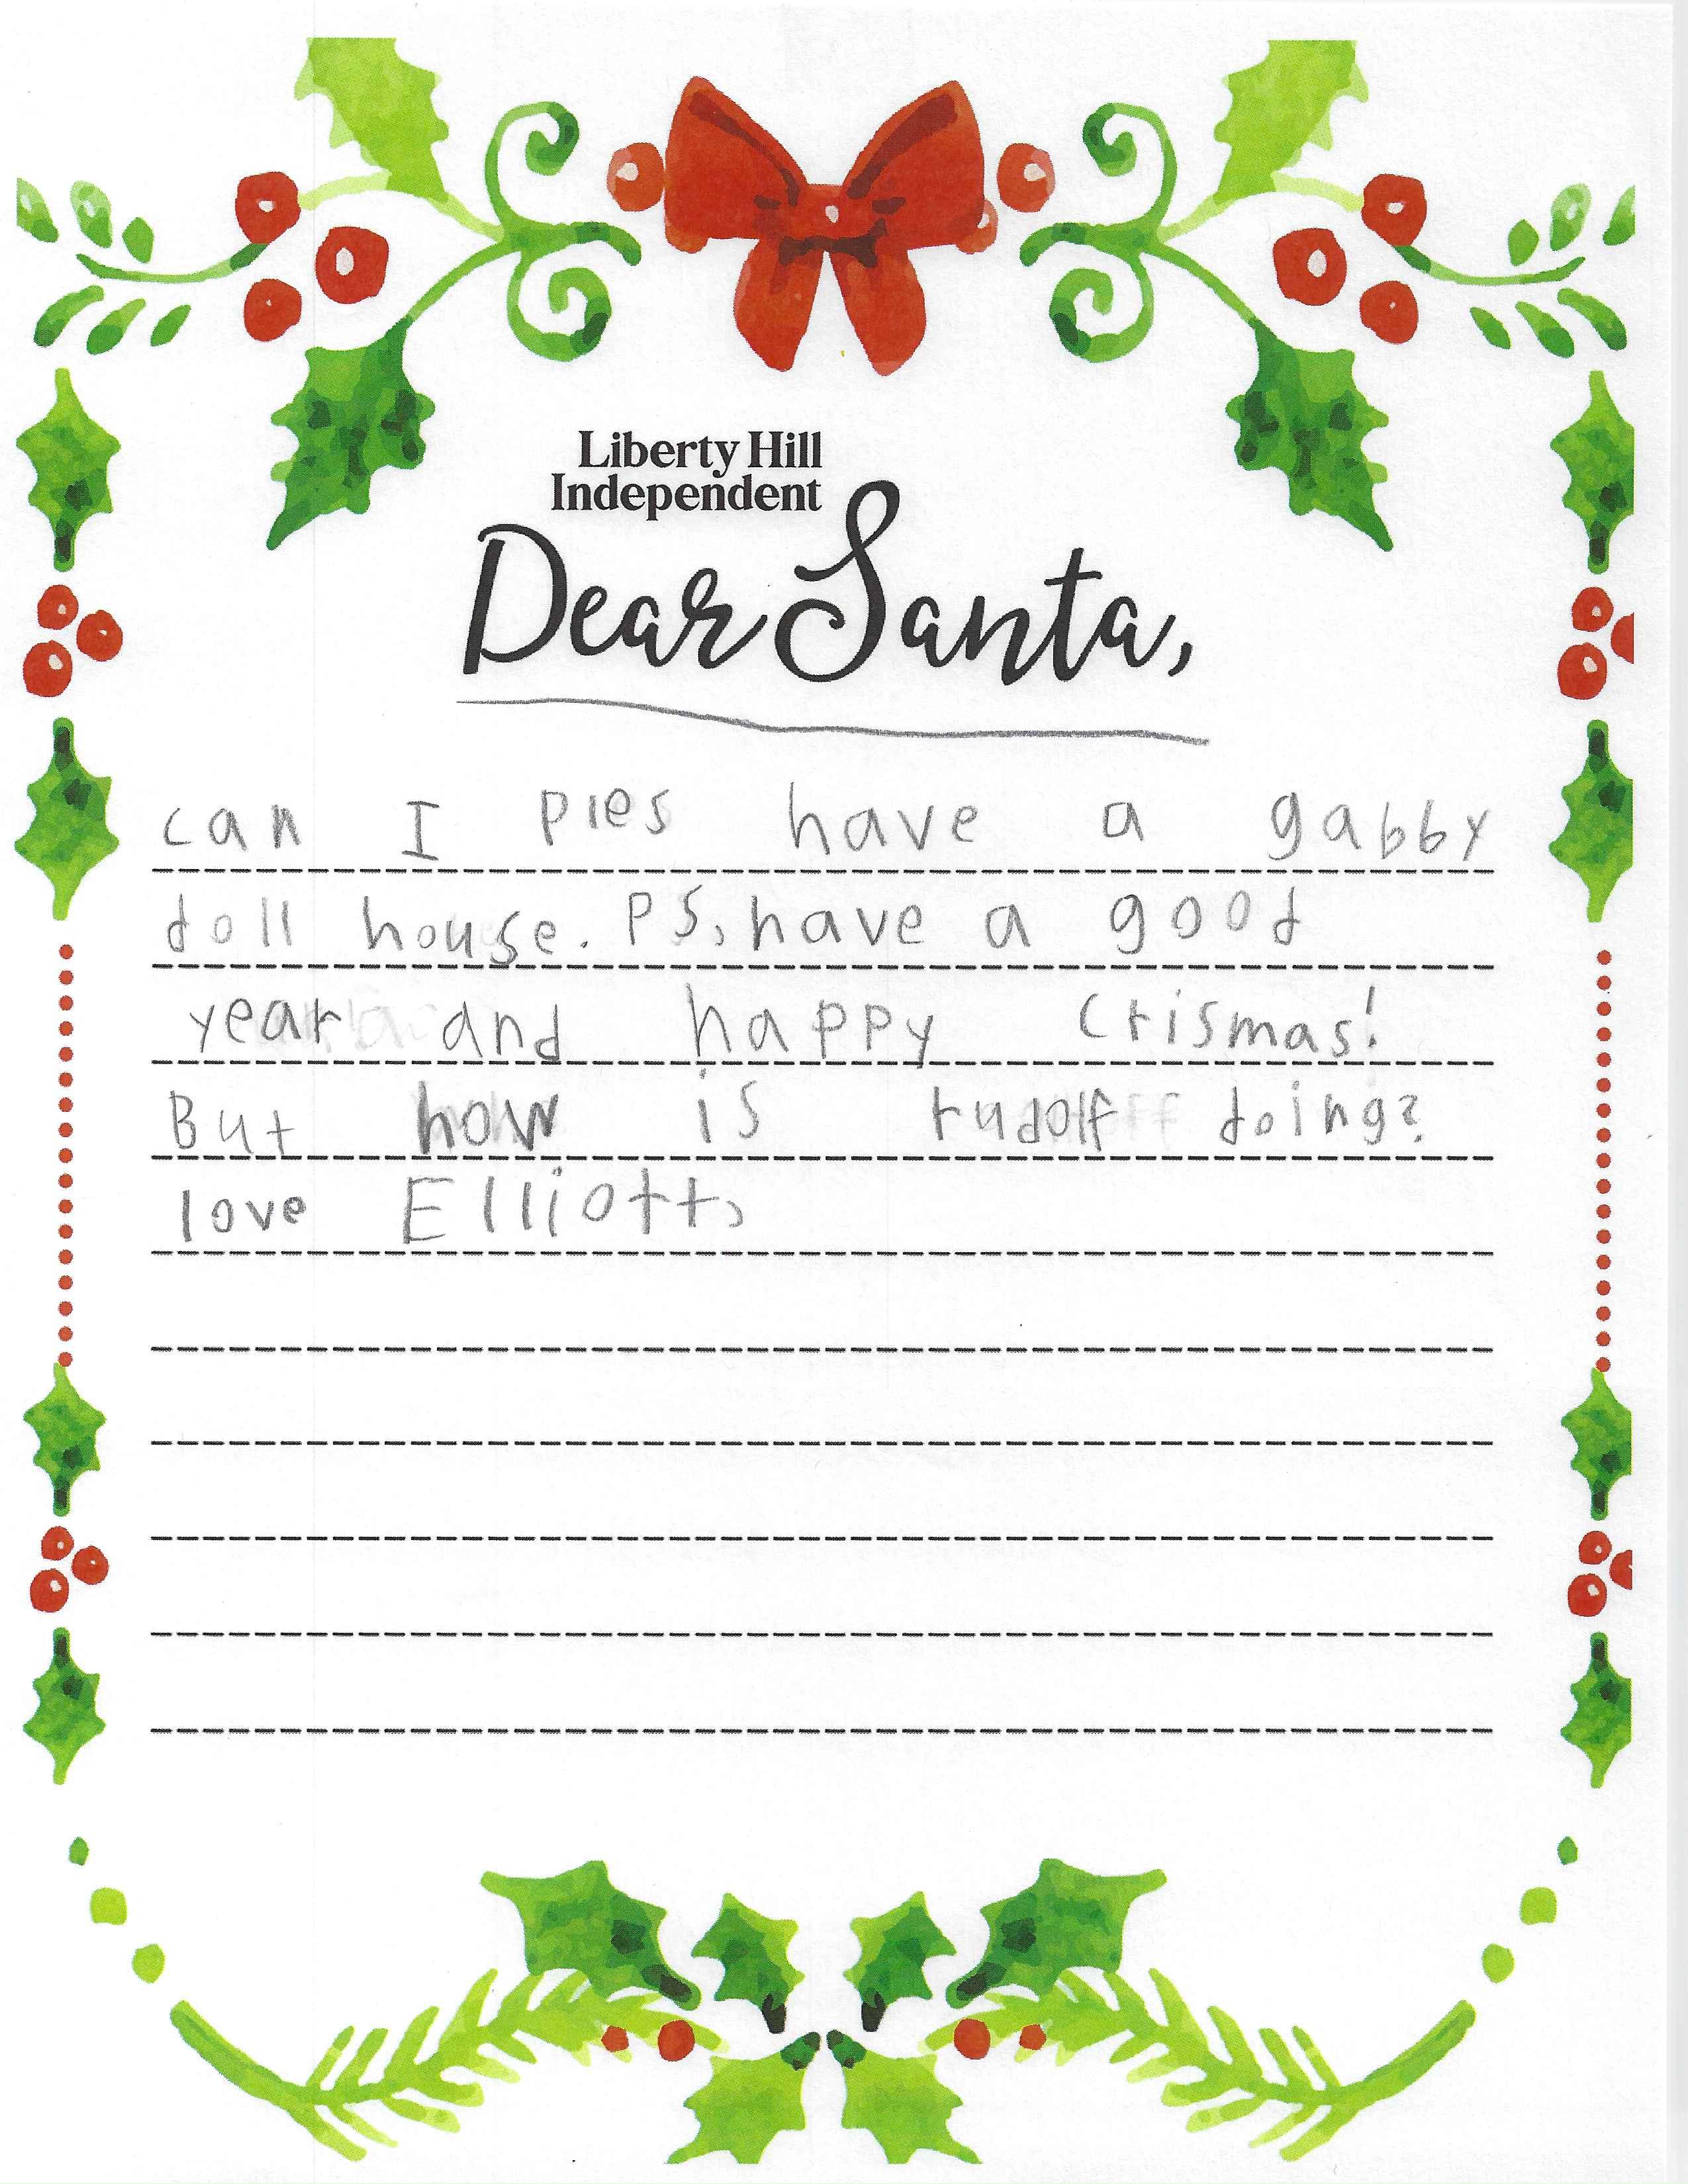 Liberty Hill
Independent
Dear Santa,
can I ples have a gabby
doll house. PS, have a good
year and happy crismas!
But how is rudolf doing?
love Elliott,